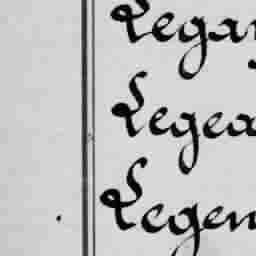 Legar
Legea
Legen